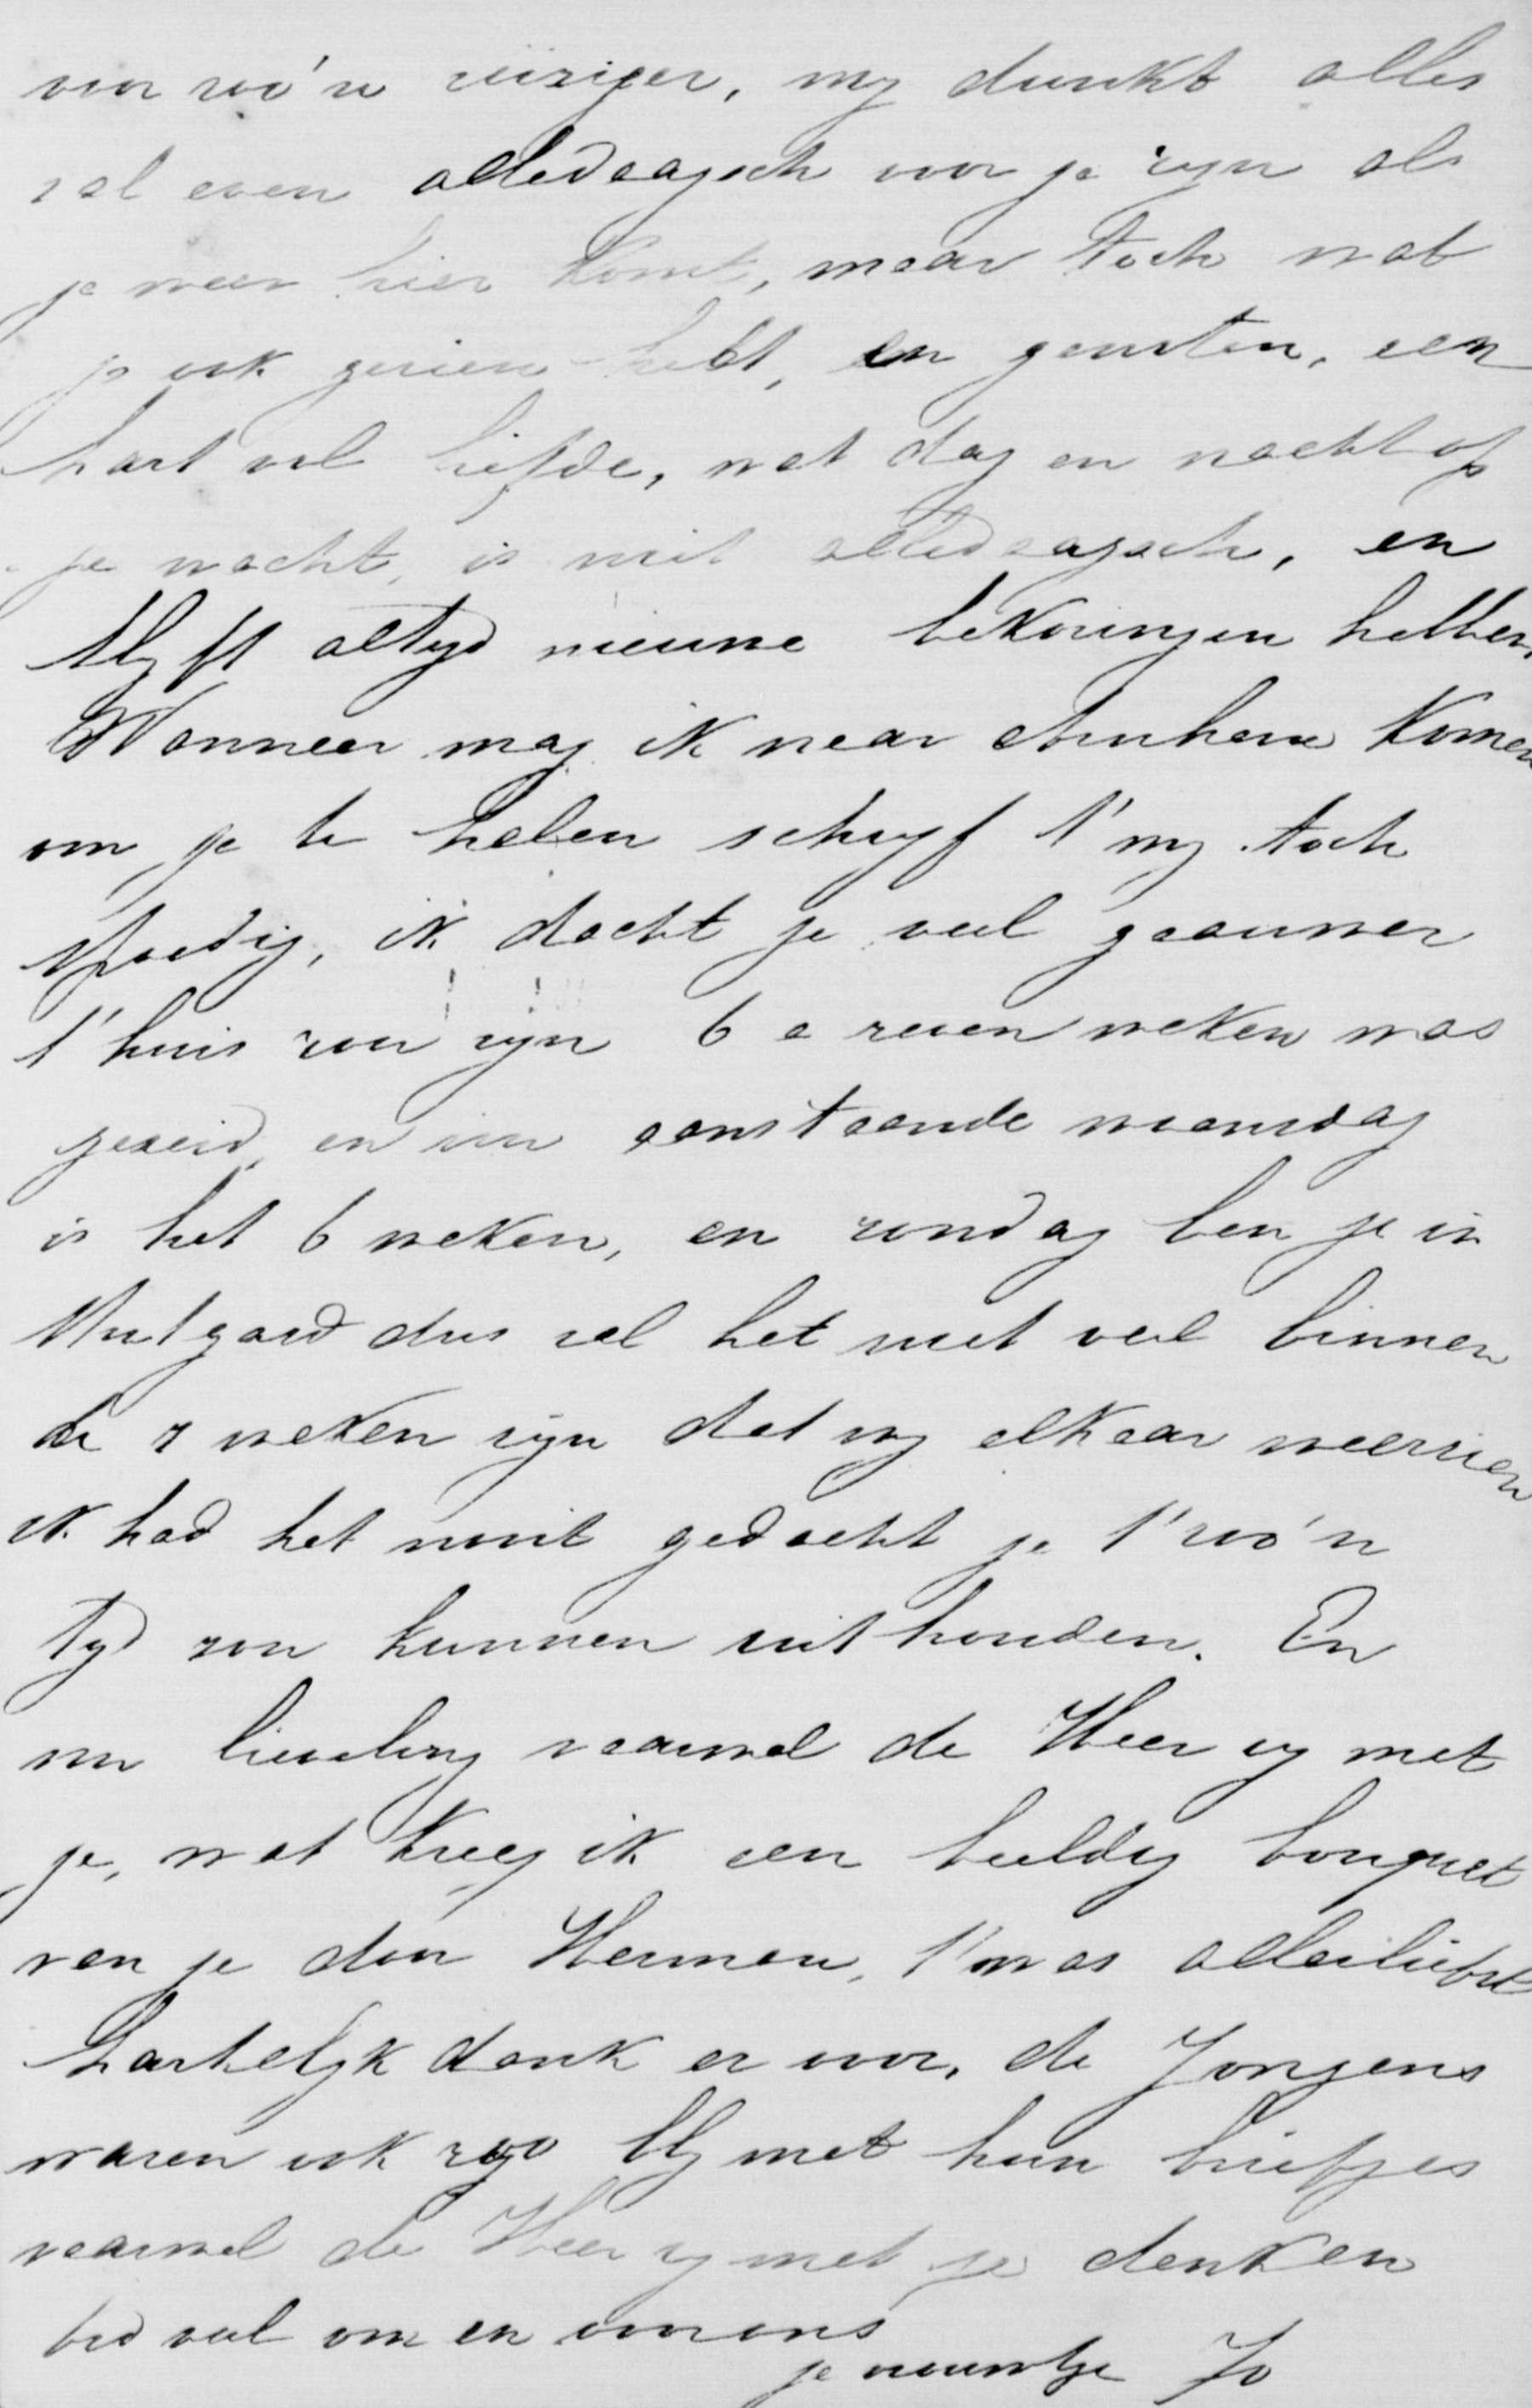 voor zoo'n reiziger, my dunkt alles
zal even alledaagsch voor je zyn als
je weer hier komt, maar toch wat
je ook gezien hebt, en genoten, een
hart vol liefde, wat dag en nacht op
je wacht, is niet alledaagsch, en
blyft altyd nieuwe bekoringen hebben,
Wanneer mag ik naar Arnhem komen
om je te halen schryf 't my toch
spoedig, ik dacht je veel gaauwer
t'huis zou zyn 6 a zeven weken was
gezeid, en nu aanstaande woensdag
is het 6 weken, en zondag ben je in
Stutgard dus zal het niet veel binnen
de 7 weken zyn dat wy elkaar weerzien
ik had het nooit gedacht je 't zoo'n
tyd zou kunnen uithouden. En
nu lieveling vaarwel de Heer zy met
je, wat kreeg ik een beeldig bouquet
van je door Herman, 't was allerliefst
hartelyk dank er voor, de Jongens
waren ook zoo bly met hun briefjes
vaarwel de Heer zy met je denk en
bid veel om en voor ons
je vrouwtje Jo